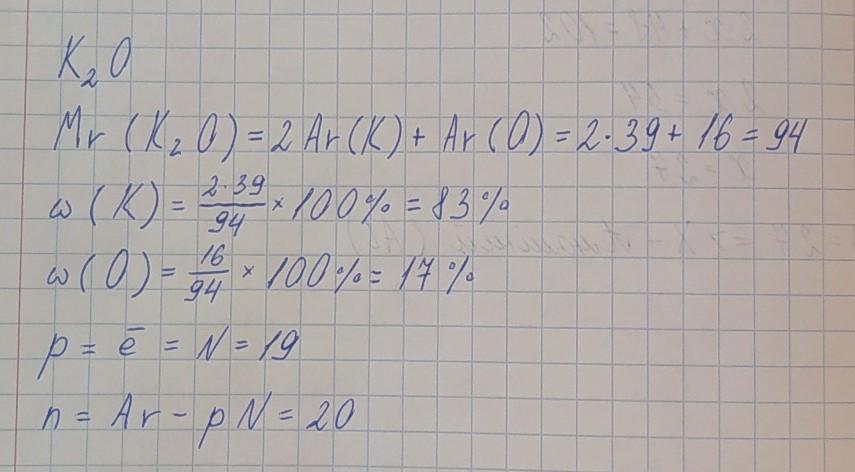 K₂O
Mr (K₂O) = 2 Ar(K) + Ar(O) = 2·39 + 16 = 94
ω (K) = 2·39/94 × 100% = 83%
ω (O) = 16/94 × 100% = 17%
p = ē = N = 19
n = Ar - pN = 20